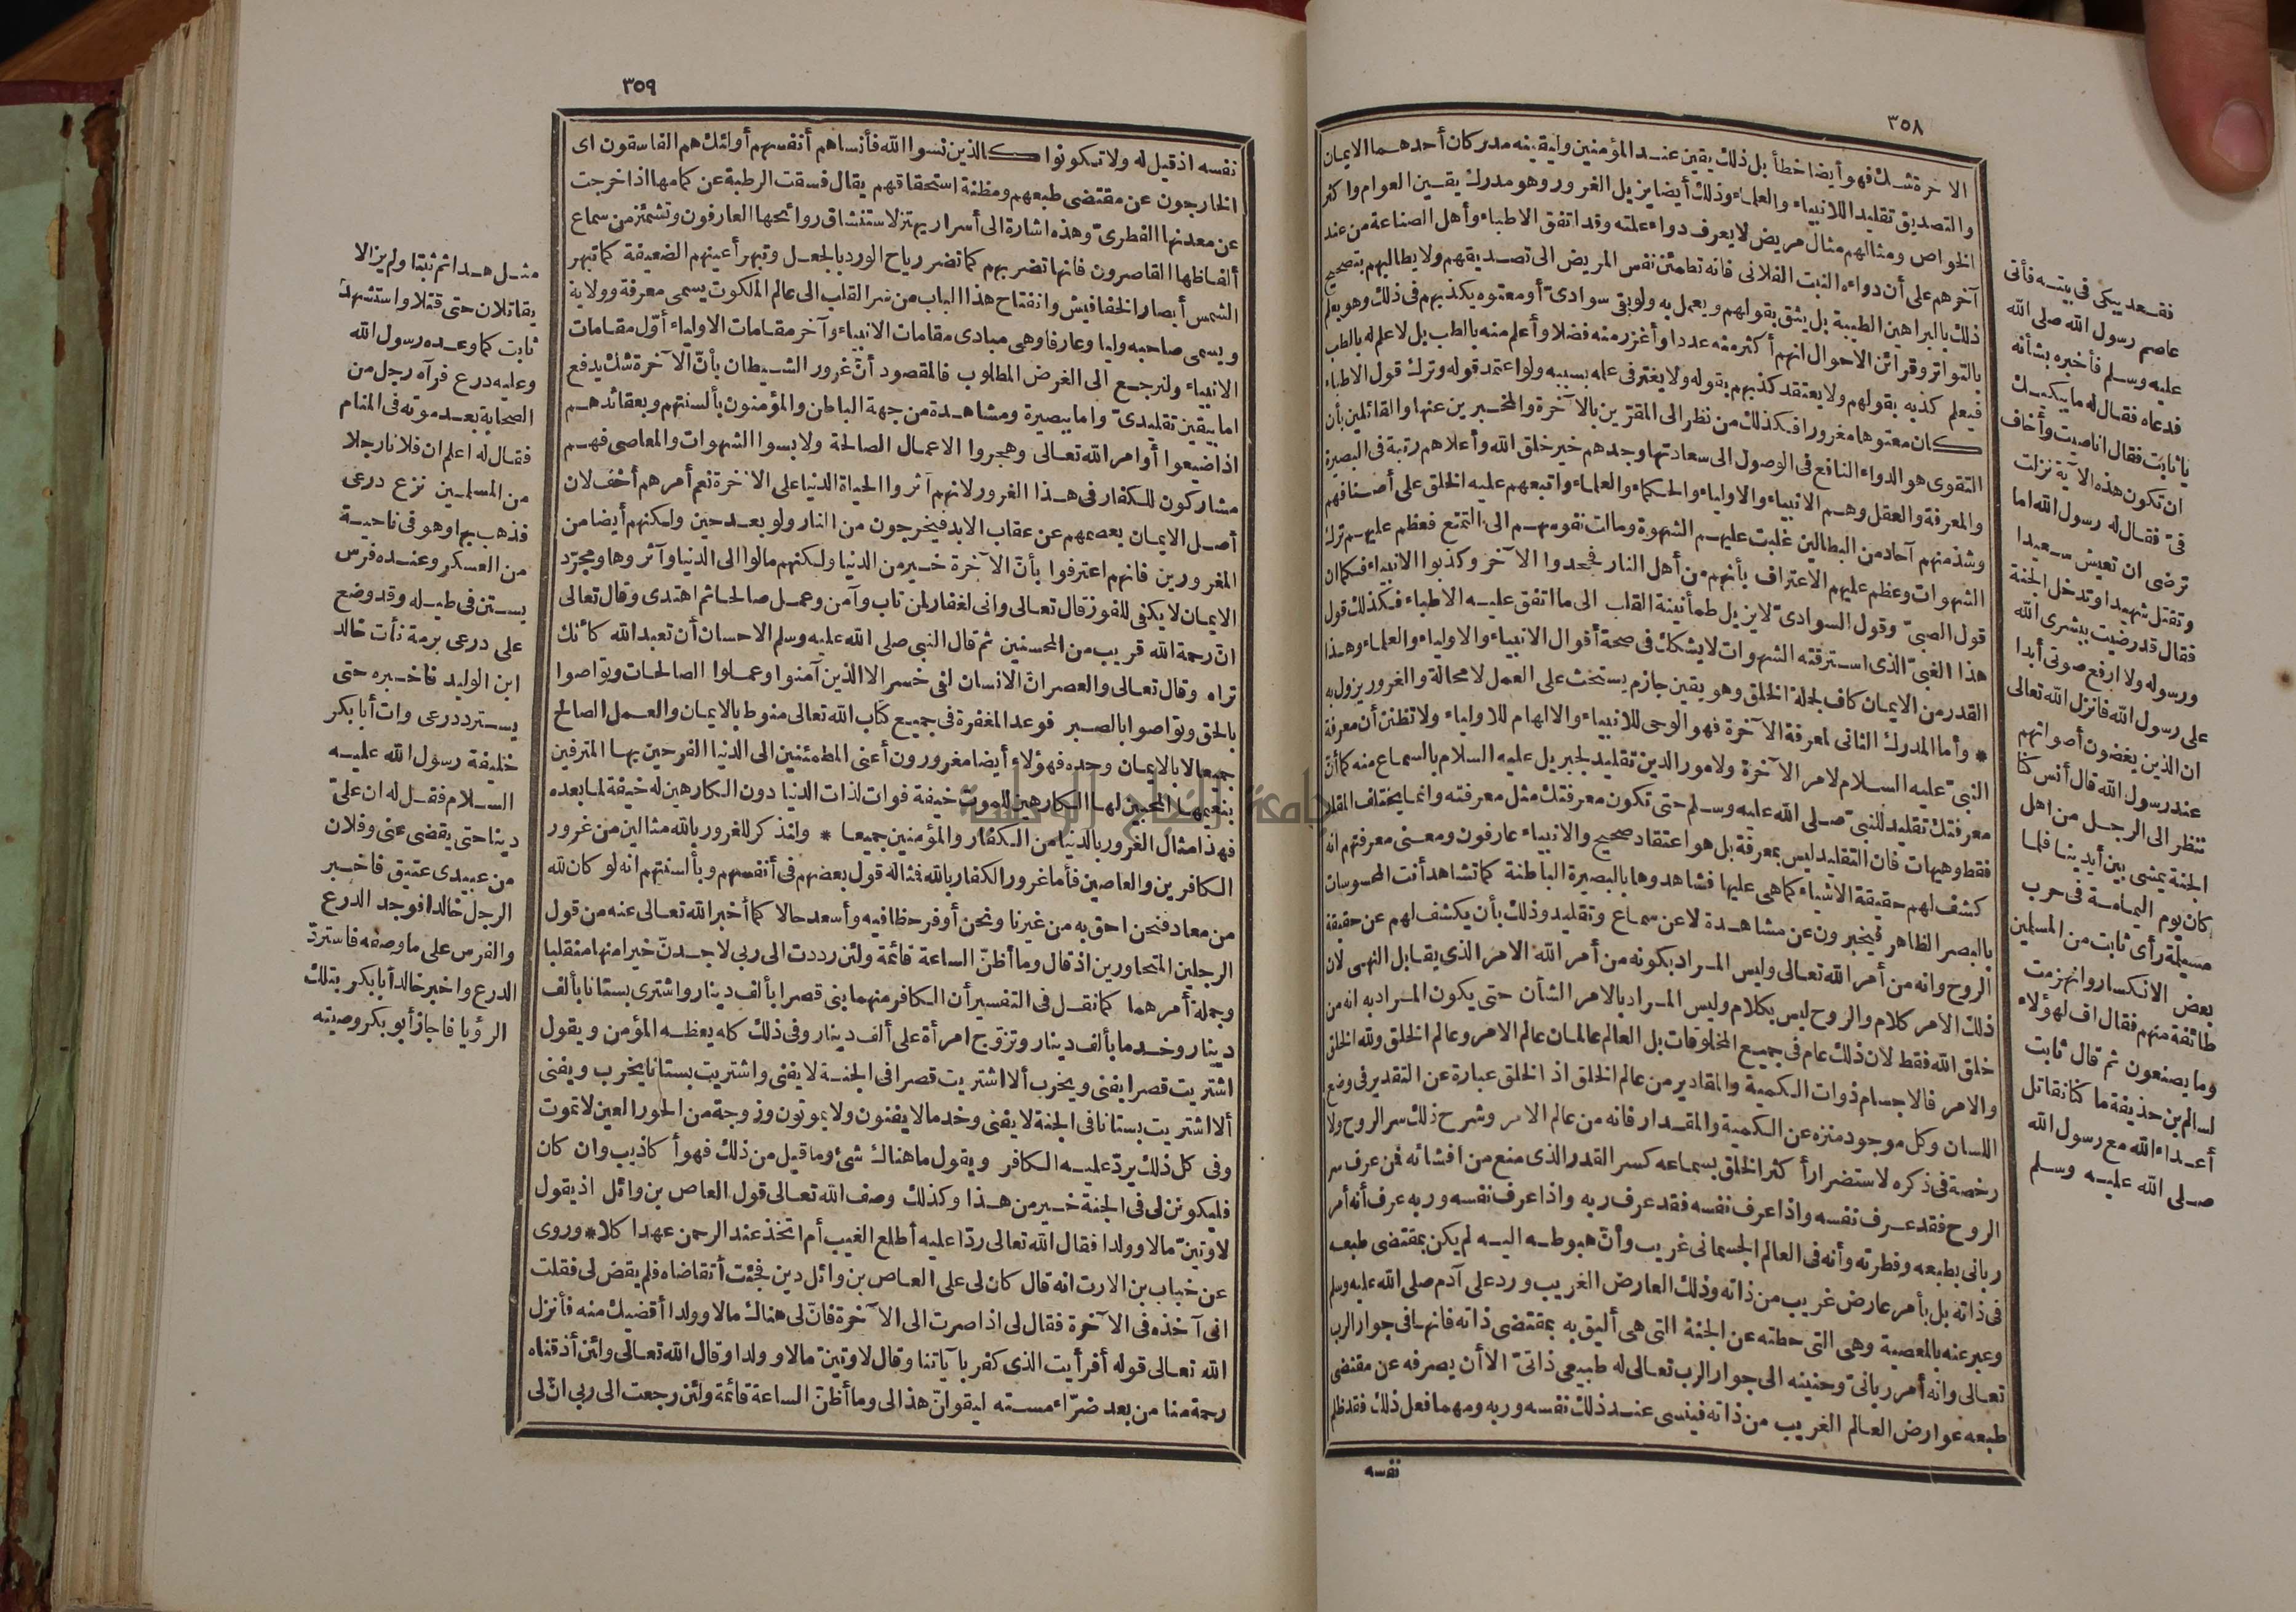 ٣٥٨
الاخرة شك فهو أيضا خطأ بل ذلك يقين عند المؤمنين وليقينه مدركان أحدهما الايمان
والتصديق تقليدا للانبياء والعلماء وذلك أيضا يزيل الغرور وهو مدرك يقين العوام واكثر
الخواص ومثالهم مثال مريض لا يعرف دواء علته وقد اتفق الاطباء وأهل الصناعة من عند
آخرهم على أن دواءه النبت الفلانى فانه تطمئن نفس المريض الى تصديقهم ولا يطالبهم بتصحيح
ذلك بالبراهين الطبية بل يثق بقولهم ويعمل به ولو بقى سوادى أو معتوه يكذبهم فى ذلك وهو يعلم
بالتواتر وقرائن الاحوال انهم أكثر منه عددا وأغزر منه فضلا وأعلم منه بالطب بل لا علم له بالطب
فيعلم كذبه بقولهم ولا يعتقد كذبهم بقوله ولا يغتر فى علمه بسببه ولو اعتمد قوله وترك قول الاطباء
كان معتوها مغرورا فكذلك من نظر الى المقرّين بالآخرة والمخبرين عنها والقائلين بأن
التقوى هو الدواء النافع فى الوصول الى سعادتها وجدهم خير خلق الله وأعلاهم رتبة فى البصيرة
والمعرفة والعقل وهم الانبياء والاولياء والحكماء والعلماء واتبعهم عليه الخلق على أصنافهم
وشذ منهم آحاد من البطالين غلبت عليهم الشهوة ومالت نفوسهم الى التمتع فعظم عليهم ترك
الشهوات وعظم عليهم الاعتراف بأنهم من أهل النار فجحدوا الآخر وكذبوا الانبياء فكما ان
قول الصبىّ وقول السوادىّ لا يزيل طمأنينة القلب الى ما اتفق عليه الاطباء فكذلك قول
هذا الغبىّ الذى استرقته الشهوات لا يشكك فى صحة أقوال الانبياء والاولياء والعلماء وهذا
القدر من الايمان كاف لجملة الخلق وهو يقين جازم يستحث على العمل لا محالة والغرور يزول به
* وأما المدرك الثانى لمعرفة الآخرة فهو الوحى للانبياء والالهام للاولياء ولا تظنن أن معرفة
النبىّ عليه السلام لامر الآخرة ولامور الدين تقليد لجبريل عليه السلام بالسماع منه كما أنّ
معرفتك تقليد للنبىّ صلى الله عليه وسلم حتى تكون معرفتك مثل معرفته وانما يختلف المقلد
فقط وهيهات فان التقليد ليس بمعرفة بل هو اعتقاد صحيح والانبياء عارفون ومعنى معرفتهم انه
كشف لهم حقيقة الاشياء كما هى عليها فشاهدوها بالبصيرة الباطنة كما تشاهد أنت المحسوسات
بالبصر الظاهر فيخبرون عن مشاهدة لا عن سماع وتقليد وذلك بأن يكشف لهم عن حقيقة
الروح وانه من أمر الله تعالى وليس المراد بكونه من أمر الله الامر الذى يقابل النهى لان
ذلك الامر كلام والروح ليس بكلام وليس المراد بالامر الشأن حتى يكون المراد به انه من
خلق الله فقط لان ذلك عام فى جميع المخلوقات بل العالم عالمان عالم الامر وعالم الخلق ولله الخلق
والامر فالاجسام ذوات الكمية والمقادير من عالم الخلق اذ الخلق عبارة عن التقدير فى وضع
اللسان وكل موجود منزه عن الكمية والمقدار فانه من عالم الامر وشرح ذلك سر الروح ولا
رخصة فى ذكره لاستضرار أكثر الخلق بسماعه كسر القدر الذى منع من افشائه فمن عرف سر
الروح فقد عرف نفسه واذا عرف نفسه فقد عرف ربه واذا عرف نفسه وربه عرف أنه أمر
ربانى بطبعه وفطرته وأنه فى العالم الجسمانى غريب وأنّ هبوطه اليه لم يكن بمقتضى طبعه
فى ذاته بل بأمر عارض غريب من ذاته وذلك العارض الغريب ورد على آدم صلى الله عليه وسلم
وعبر عنه بالمعصية وهى التى حطته عن الجنة التى هى أليق به بمقتضى ذاته فانها فى جوار الرب
تعالى وانه أمر ربانىّ وحنينه الى جوار الرب تعالى له طبيعى ذاتىّ الا أن يصرفه عن مقتضى
طبعه عوارض العالم الغريب من ذاته فينسى عند ذلك نفسه وربه ومهما فعل ذلك فقد ظلم
نفسه
فقعد يبكى فى بيته فأتى
عاصم رسول الله صلى الله
عليه وسلم فأخبره بشأنه
فدعاه فقال له ما يبكيك
يا ثابت فقال انا صيت وأخاف
ان تكون هذه الآية نزلت
فىّ فقال له رسول الله اما
ترضى ان تعيش سعيدا
وتقتل شهيدا وتدخل الجنة
فقال قد رضيت ببشرى الله
ورسوله ولا ارفع صوتى أبدا
على رسول الله فانزل الله تعالى
ان الذين يغضون أصواتهم
عند رسول الله قال أنس كنا
ننظر الى الرجل من اهل
الجنة يمشى بين أيدينا فلما
كان يوم اليمامة فى حرب
مسيلة رأى ثابت من المسلمين
بعض الانكسار وانهزمت
طائفة منهم فقال اف لهؤلاء
وما يصنعون ثم قال ثابت
لسالم بن حذيفة ما كنا نقاتل
أعداء الله مع رسول الله
صلى الله عليه وسلم
٣٥٩
نفسه اذ قيل له ولا تكونوا كالذين نسوا الله فأنساهم أنفسهم أولئك هم الفاسقون اى
الخارجون عن مقتضى طبعهم ومظنة استحقاقهم يقال فسقت الرطبة عن كمامها اذا خرجت
عن معدنها الفطرىّ وهذه اشارة الى أسرار يهتز لاستنشاق روائحها العارفون وتشمئز من سماع
ألفاظها القاصرون فانها تضر بهم كما تضر رياح الورد بالجعل وتبهر أعينهم الضعيفة كما تبهر
الشمس أبصار الخفافيش وانفتاح هذا الباب من سر القلب الى عالم الملكوت يسمى معرفة وولاية
ويسمى صاحبه وليا وعارفا وهى مبادى مقامات الانبياء وآخر مقامات الاولياء أوّل مقامات
الانبياء ولنرجع الى الغرض المطلوب فالمقصود أنّ غرور الشيطان بأنّ الآخرة شك يدفع
اما بيقين تقليدىّ واما ببصيرة ومشاهدة من جهة الباطن والمؤمنون بألسنتهم وبعقائدهم
اذا ضيعوا أوامر الله تعالى وهجروا الاعمال الصالحة ولابسوا الشهوات والمعاصى فهم
مشاركون للكفار فى هذا الغرور لانهم آثروا الحياة الدنيا على الآخرة نعم أمرهم أخف لان
أصل الايمان يعصمهم عن عقاب الابد فيخرجون من النار ولو بعد حين ولكنهم أيضا من
المغرورين فانهم اعترفوا بأنّ الآخرة خير من الدنيا ولكنهم مالوا الى الدنيا وآثروها ومجرّد
الايمان لا يكفى للفوز قال تعالى وانى لغفار لمن تاب وآمن وعمل صالحا ثم اهتدى وقال تعالى
انّ رحمة الله قريب من المحسنين ثم قال النبى صلى الله عليه وسلم الاحسان أن تعبد الله كأنك
تراه وقال تعالى والعصر انّ الانسان لفى خسر الا الذين آمنوا وعملوا الصالحات وتواصوا
بالحق وتواصوا بالصبر فوعد المغفرة فى جميع كتاب الله تعالى منوط بالايمان والعمل الصالح
جميعا لا بالايمان وحده فهؤلاء أيضا مغرورون أعنى المطمئنين الى الدنيا الفرحين بها المترفين
بنعيمها المحبين لها الكارهين للموت خيفة فوات لذات الدنيا دون الكارهين له خيفة لما بعده
فهذا مثال الغرور بالدنيا من الكفار والمؤمنين جميعا * ولنذكر للغرور بالله مثالين من غرور
الكافرين والعاصين فأما غرور الكفار بالله فمثاله قول بعضهم فى أنفسهم وبألسنتهم انه لو كان لله
من معاد فنحن احق به من غيرنا ونحن أوفر حظا فيه وأسعد حالا كما أخبر الله تعالى عنه من قول
الرجلين المتحاورين اذ قال وما أظنّ الساعة قائمة ولئن رددت الى ربى لاجدنّ خيرا منها منقلبا
وجملة أمرهما كما نقل فى التفسير أن الكافر منهما بنى قصرا بألف دينار واشترى بستانا بألف
دينار وخدما بألف دينار وتزوّج امرأة على ألف دينار وفى ذلك كله يعظه المؤمن ويقول
اشتريت قصرا يفنى ويخرب ألا اشتريت قصرا فى الجنة لا يفنى واشتريت بستانا يخرب ويفنى
ألا اشتريت بستانا فى الجنة لا يفنى وخدما لا يفنون ولا يموتون وزوجة من الحور العين لا تموت
وفى كل ذلك يردّ عليه الكافر ويقول ما هناك شئ وما قيل من ذلك فهو أكاذيب وان كان
فليكوننّ لى فى الجنة خير من هذا وكذلك وصف الله تعالى قول العاص بن وائل اذ يقول
لاوتينّ مالا وولدا فقال الله تعالى ردّا عليه أطلع الغيب أم اتخذ عند الرحمن عهدا كلا * وروى
عن خباب بن الارت انه قال كان لى على العاص بن وائل دين فجئت أتقاضاه فلم يقض لى فقلت
انى آخذه فى الآخرة فقال لى اذا صرت الى الآخرة فانّ لى هناك مالا وولدا أقضيك منه فأنزل
الله تعالى قوله أفرأيت الذى كفر بآياتنا وقال لاوتينّ مالا وولدا وقال الله تعالى ولئن أذقناه
رحمة منا من بعد ضرّاء مسته ليقولنّ هذا لى وما أظنّ الساعة قائمة ولئن رجعت الى ربى انّ لى
مثل هذا ثم ثبتا ولم يزالا
يقاتلان حتى قتلا واستشهد
ثابت كما وعده رسول الله
وعليه درع فرآه رجل من
الصحابة بعد موته فى المنام
فقال له اعلم ان فلانا رجلا
من المسلمين نزع درعى
فذهب بها وهو فى ناحية
من العسكر وعنده فرس
يستن فى طيله وقد وضع
على درعى برمة فأت خالد
ابن الوليد فاخبره حتى
يسترد درعى وات أبا بكر
خليفة رسول الله عليه
السلام فقل له ان علىّ
دينا حتى يقضى عنى وفلان
من عبيدى عتيق فاخبر
الرجل خالدا فوجد الدرع
والفرس على ما وصفه فاستردّ
الدرع واخبر خالد أبا بكر بتلك
الرؤيا فاجاز أبو بكر وصيته